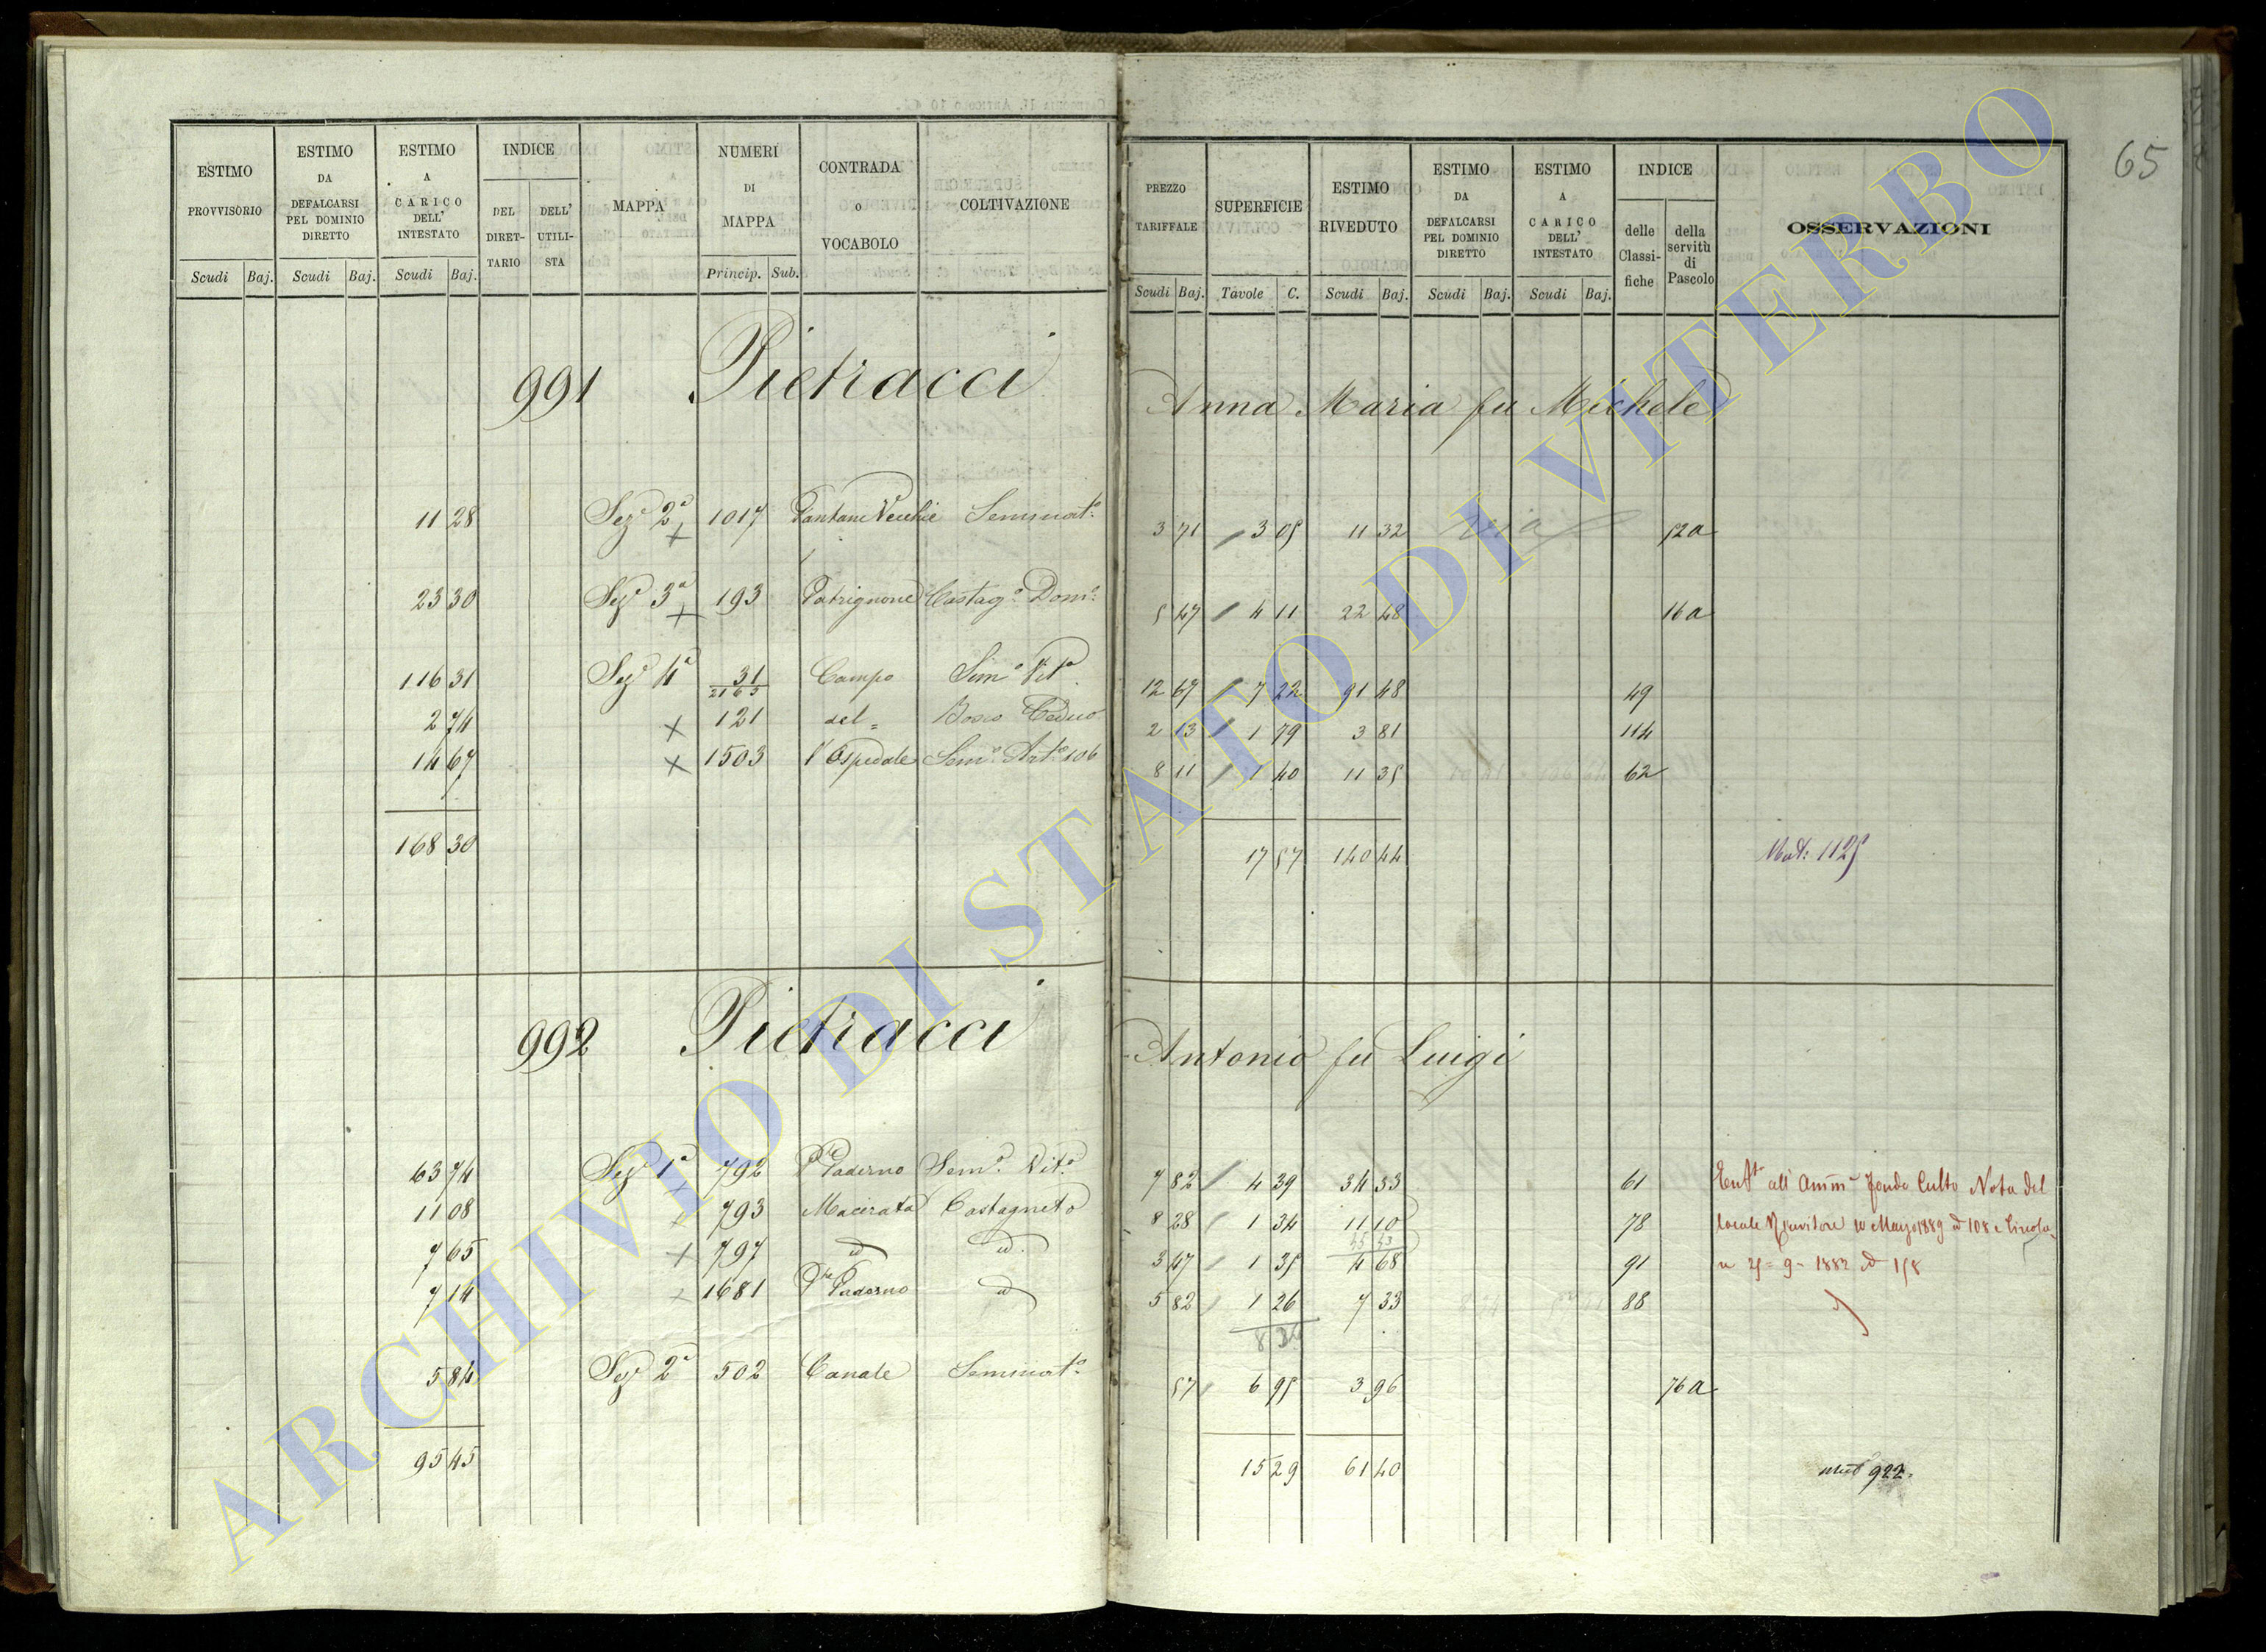 65
ESTIMO PROVVISORIO
ESTIMO DA DEFALCARSI PEL DOMINIO DIRETTO
ESTIMO A CARICO DELL' INTESTATO
INDICE
DEL DIRET- TARIO
DELL' UTILI- STA
MAPPA
NUMERI DI MAPPA
CONTRADA o VOCABOLO
COLTIVAZIONE
Scudi Baj. Scudi Baj. Scudi Baj. Princip. Sub.
PREZZO TARIFFALE
SUPERFICIE
ESTIMO RIVEDUTO
ESTIMO DA DEFALCARSI PEL DOMINIO DIRETTO
ESTIMO A CARICO DELL' INTESTATO
INDICE
delle Classi- fiche
della servitù di Pascolo
OSSERVAZIONI
Scudi Baj. Tavole C. Scudi Baj. Scudi Baj. Scudi Baj.
991 Pietracci Anna Maria fu Michele
11 28 Sez.e 2a 1017 Pantane Vecchie Seminat.o 3 71 3 05 11 32 52a
23 30 Sez.e 3a 193 Patrignone Castag.o Dom.o 5 47 4 11 22 48 16a
116 31 Sez.e 4a 31/2165 Campo Sem.o Vit.o 12 67 7 22 91 48 49
2 74 121 del= Bosco Ceduo 2 13 1 79 3 81 114
14 67 1503 l'Ospedale Sem.o Art.o 106 8 11 1 40 11 35 62
168 30 17 57 140 44 Mut: 1125
992 Pietracci Antonio fu Luigi
63 74 Sez.e 1a 792 Paderno Sem.o Vit.o 7 82 4 39 34 33 61
11 08 793 Macerata Castagneto 8 28 1 34 11 10 78
45 43
7 65 797 id id. 3 47 1 35 4 68 91
7 14 1681 Paderno id 5 82 1 26 7 33 88
8 34
5 84 Sez.e 2a 502 Canale Seminat.o 57 6 95 3 96 76a
95 45 15 29 61 40
all' Amm.e Fondo Culto Nota del
locale 10 Marzo 1889 N 108 e Circola-
re 25=9-1882 N 158
Mut 922.
ARCHIVIO DI STATO DI VITERBO